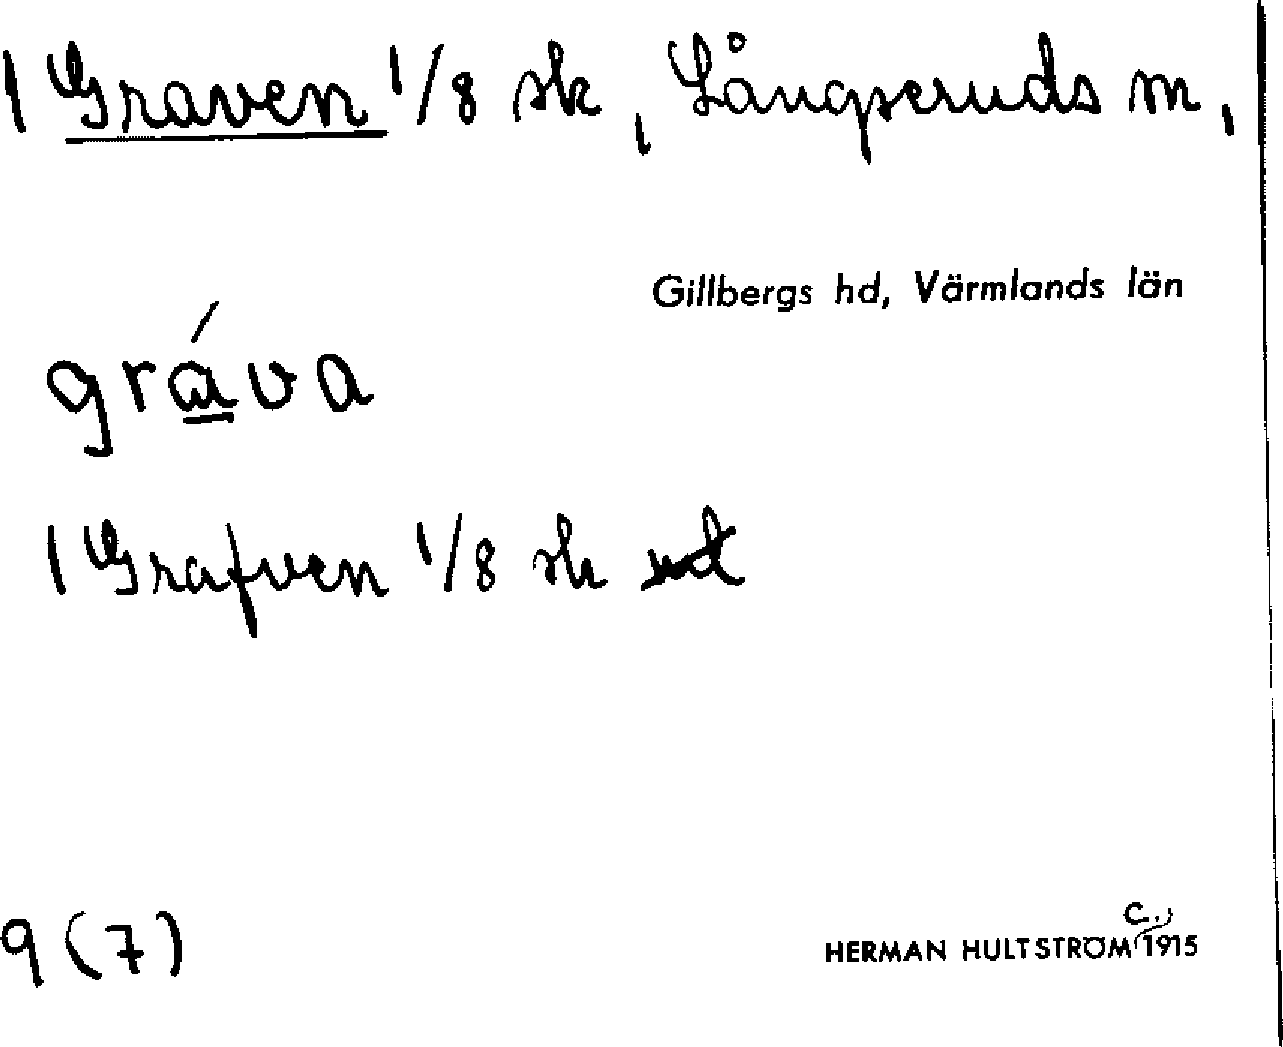 1 Graven 1/8 sk, Långseruds sn,
Gillbergs hd, Värmlands län
gráva
1 Grafven 1/8 sk
9 (7)
HERMAN HULTSTRÖM c. 1915